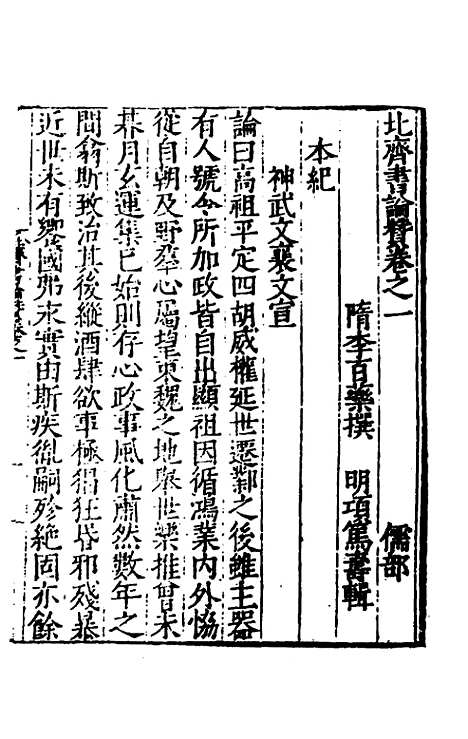 北齊書論賛卷之一　儒部
隋李百藥撰　明項篤壽輯
本紀
神武文襄文宣
論曰高祖平定四胡威權延世遷鄴之後雖主器
有人號令所加政皆自出顯祖因循鴻業内外恊
從自朝及野羣心屬望東魏之地舉世樂推曾未
朞月玄運集已始則存心政事風化肅然數年之
間翕斯致治其後縱酒肆欲事極猖狂昏邪殘暴
近世未有饗國弗永實由斯疾胤嗣殄絶固亦餘